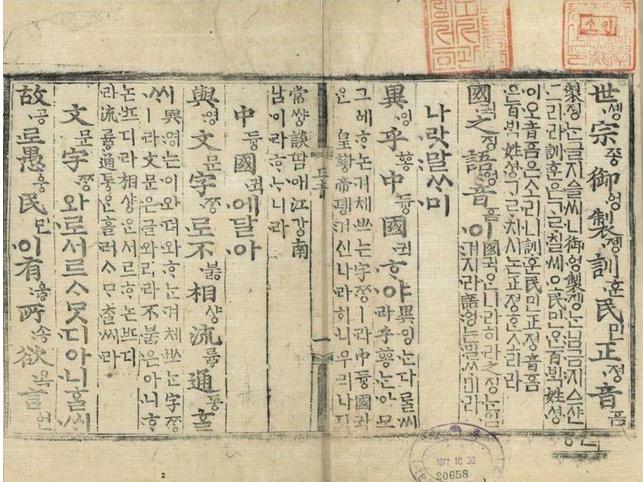 世솅宗종御엉製졩訓훈民민正졍音흠
製졩는글지슬씨니御엉製졩는님금지스샨
그리라訓훈은ᄀᆞᄅᆞ칠씨오民민은百ᄇᆡᆨ姓셩
이오音흠은소리니訓훈民민正졍音흠
은百ᄇᆡᆨ姓셩ᄀᆞᄅᆞ치시논正졍ᄒᆞᆫ소리라
國귁之징語엉音흠이
國귁ᄋᆞᆫ나라히라之징ᄂᆞᆫ
입겨지라語엉는말ᄊᆞ미라
나랏말ᄊᆞ미
異잉乎ᅘᅩᆼ中듕國귁ᄒᆞ야
異잉ᄂᆞᆫ다ᄅᆞᆯ씨
라乎ᅘᅩᆼᄂᆞᆫ아모
그ᅌᅦᄒᆞ논겨체ᄡᅳ는字ᄍᆞᆼㅣ라中듕國귁
ᄋᆞᆫ皇ᅘᅪᆼ帝뎽겨신나라히니우리나랏
常썅談땀애江강南
남이라ᄒᆞᄂᆞ니라
中듕國귁에달아
與영文문字ᄍᆞᆼ로不불相샹流륳通통ᄒᆞᆯᄊᆡ
與영는이와뎌와ᄒᆞᄂᆞᆫ겨체ᄡᅳ는字ᄍᆞᆼ
ㅣ라文문은글와리라不불은아니ᄒᆞ
논ᄠᅳ디라相샹ᄋᆞᆫ서르ᄒᆞ논ᄠᅳ디
라流륳通통ᄋᆞᆫ흘러ᄉᆞᄆᆞᄎᆞᆯ씨라
文문字ᄍᆞᆼ와로서르ᄉᆞᄆᆞᆺ디아니ᄒᆞᆯᄊᆡ
故공로愚웅民민이有ᅌᅮᇢ所송欲욕言언
1977 10 30
20658
2